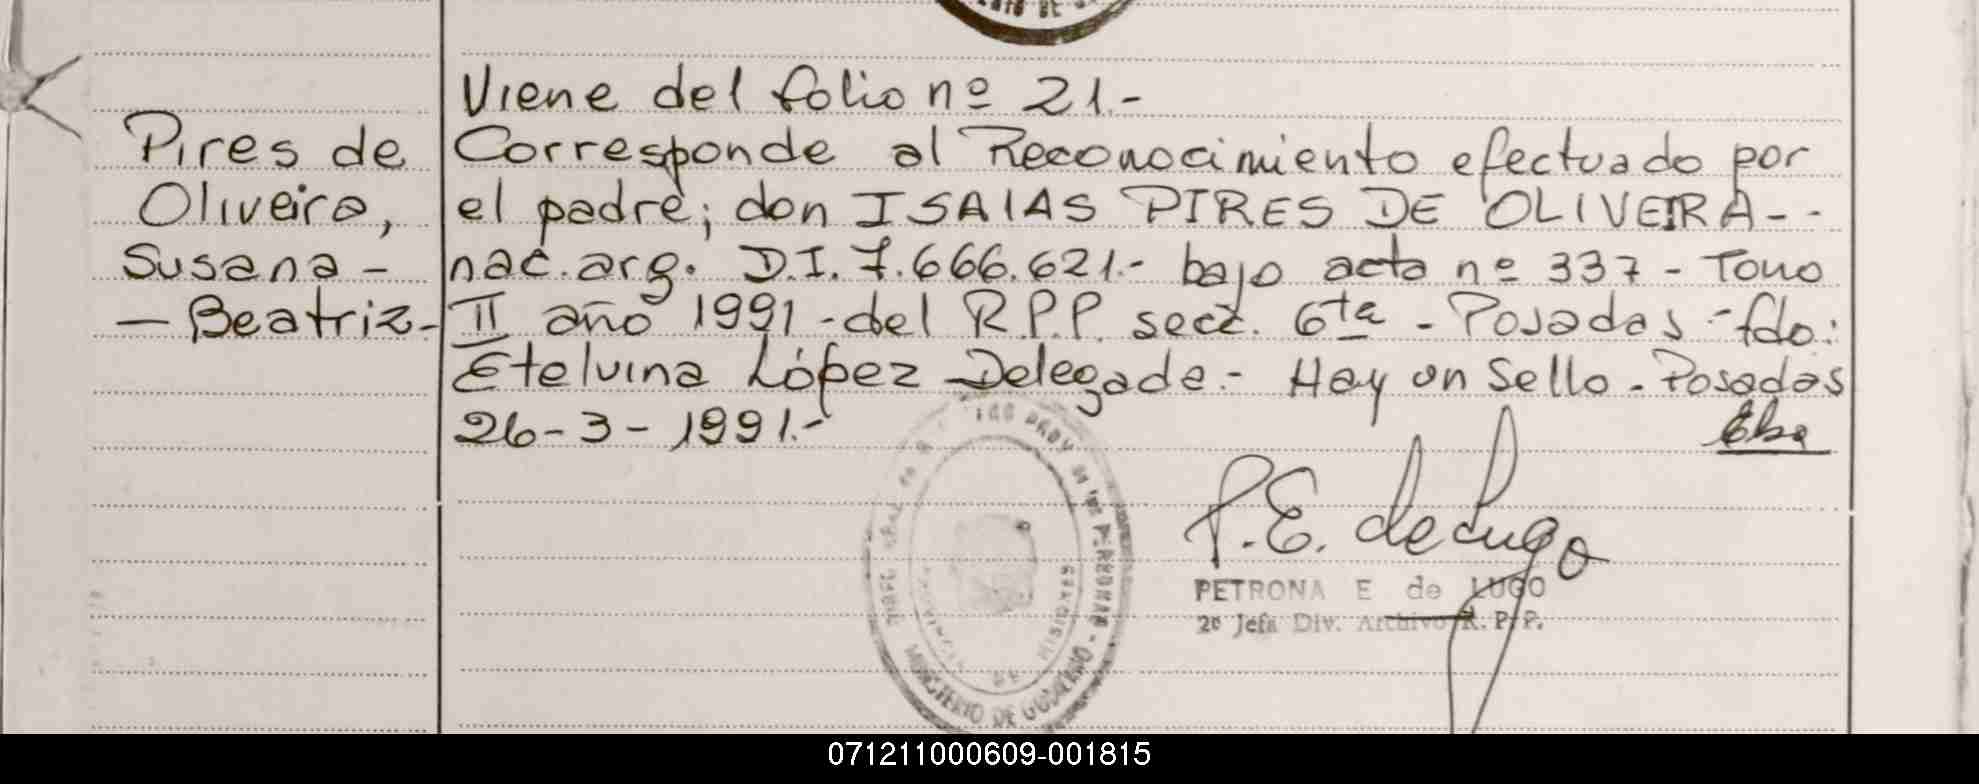 Viene del folio nº 21.-
Pires de
Oliveira,
Susana -
- Beatriz -
Corresponde al Reconocimiento efectuado por
el padre; don ISAIAS PIRES DE OLIVEIRA - -
nac. arg. D.I. 7.666.621.- bajo acta nº 337 - Tomo
II año 1991 - del R.P.P. secc. 6ta - Posadas - fdo:
Etelvina López Delegada.- Hay un Sello - Posadas
26-3-1991.-
P.E. de Lugo
PETRONA E de LUGO
2º Jefa Div. Archivo R.P.P.
MINISTERIO DE GOBIERNO
071211000609-001815